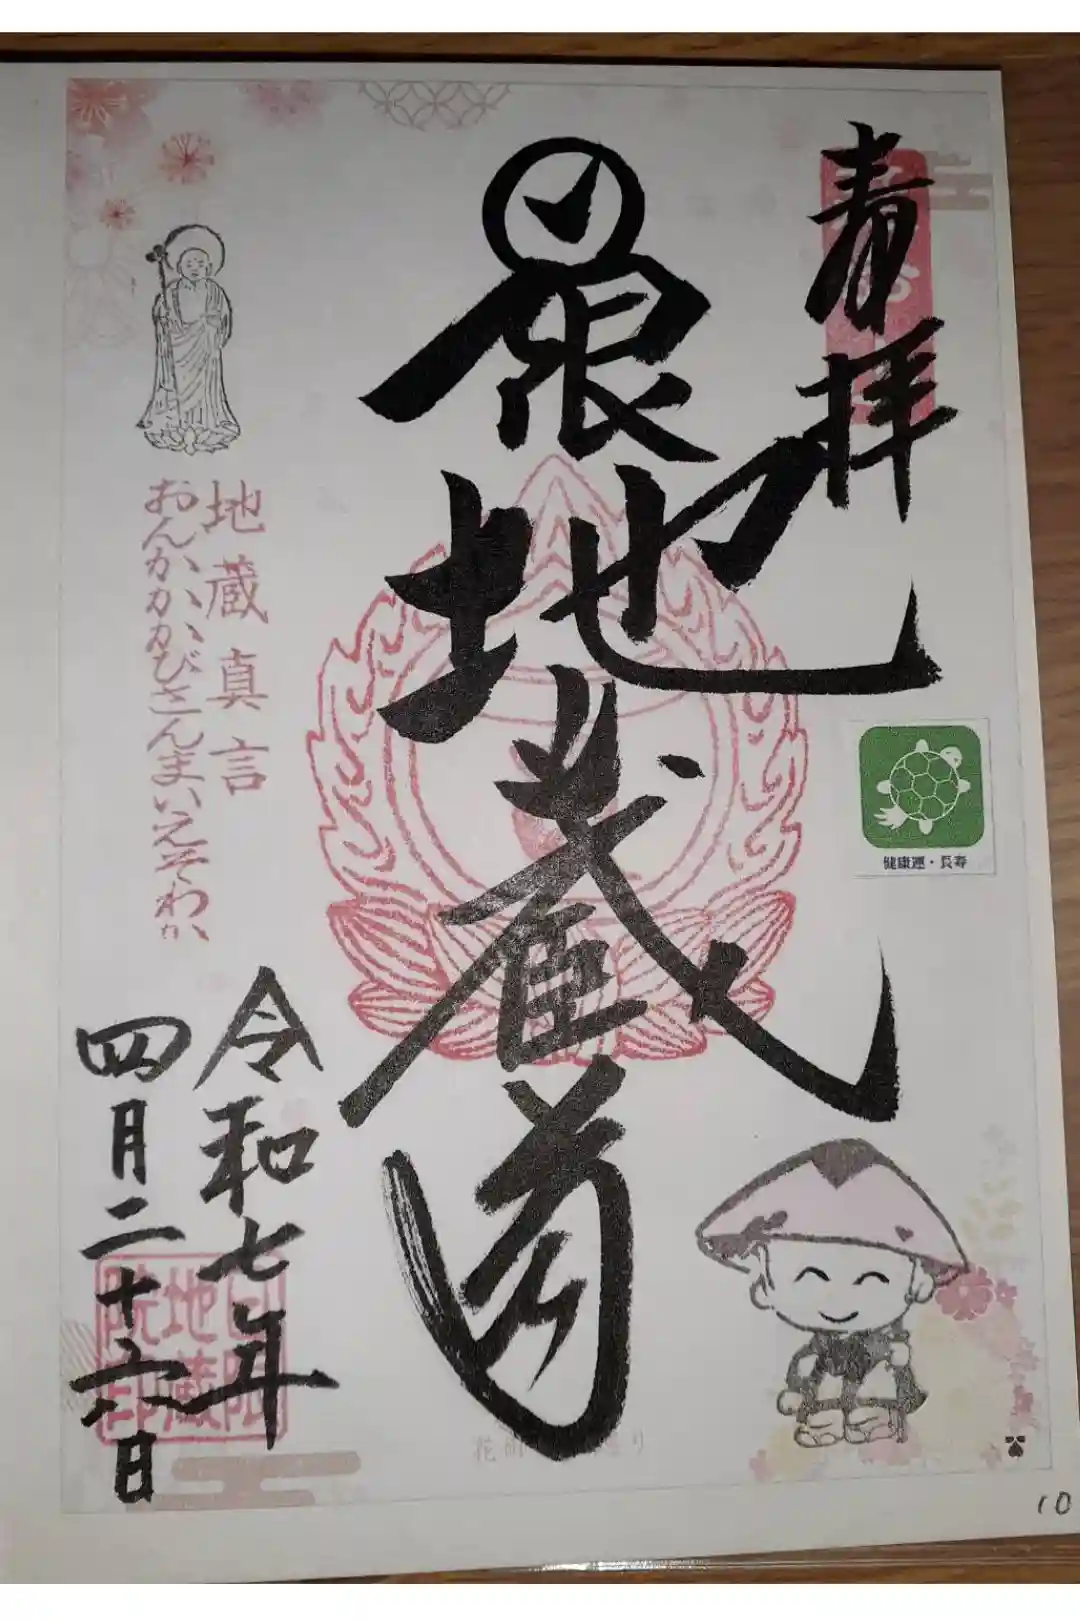 春拝
日限地蔵尊
健康運・長寿
地蔵真言
おんかかかびさんまいえそわか
令和七年
四月二十六日
日限
地蔵
院印
10